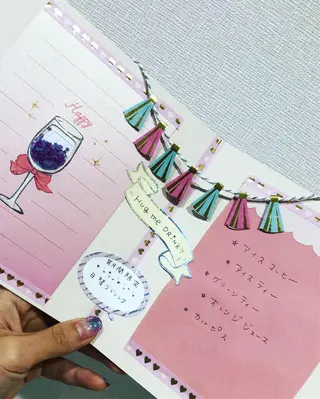 Happy
Hug me DRINK!!
期間限定
日替りドリンク
★アイスコーヒー
★アイスティー
★グリーンティー
★オレンジジュース
★カルピス